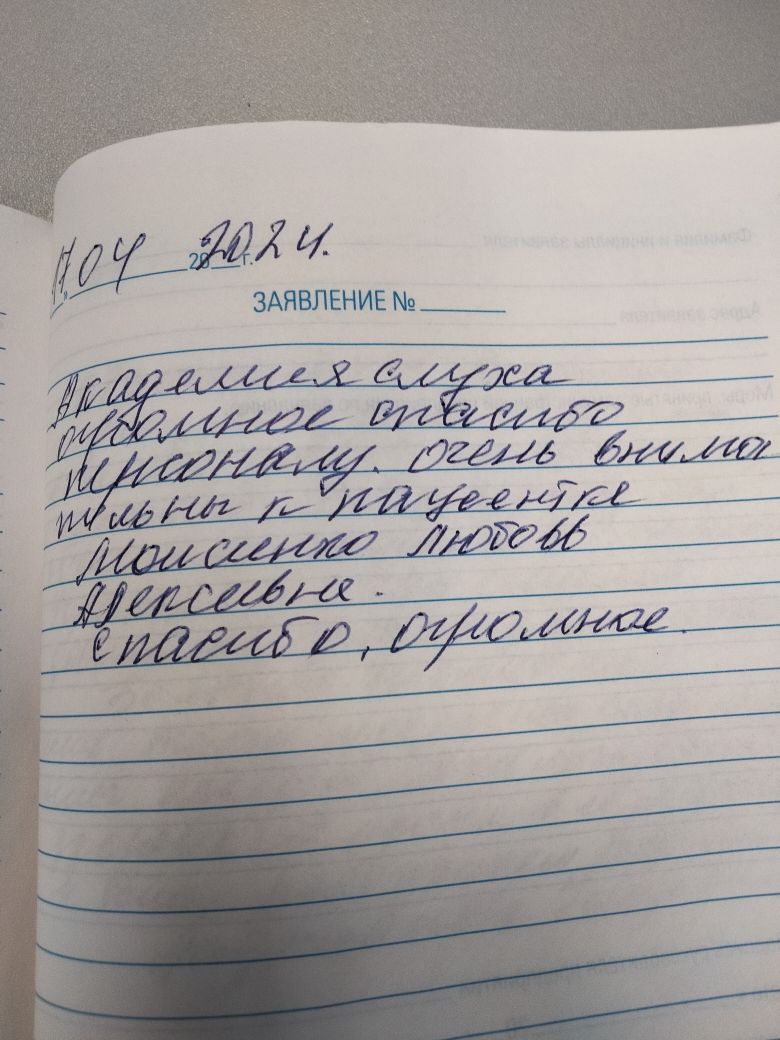 17.04 2024.
20 г.
ЗАЯВЛЕНИЕ №
Академия слуха
огромное спасибо
персоналу. очень внима
тельны к пациентке
Моисенко Любовь
Алексевне.
спасибо, огромное.